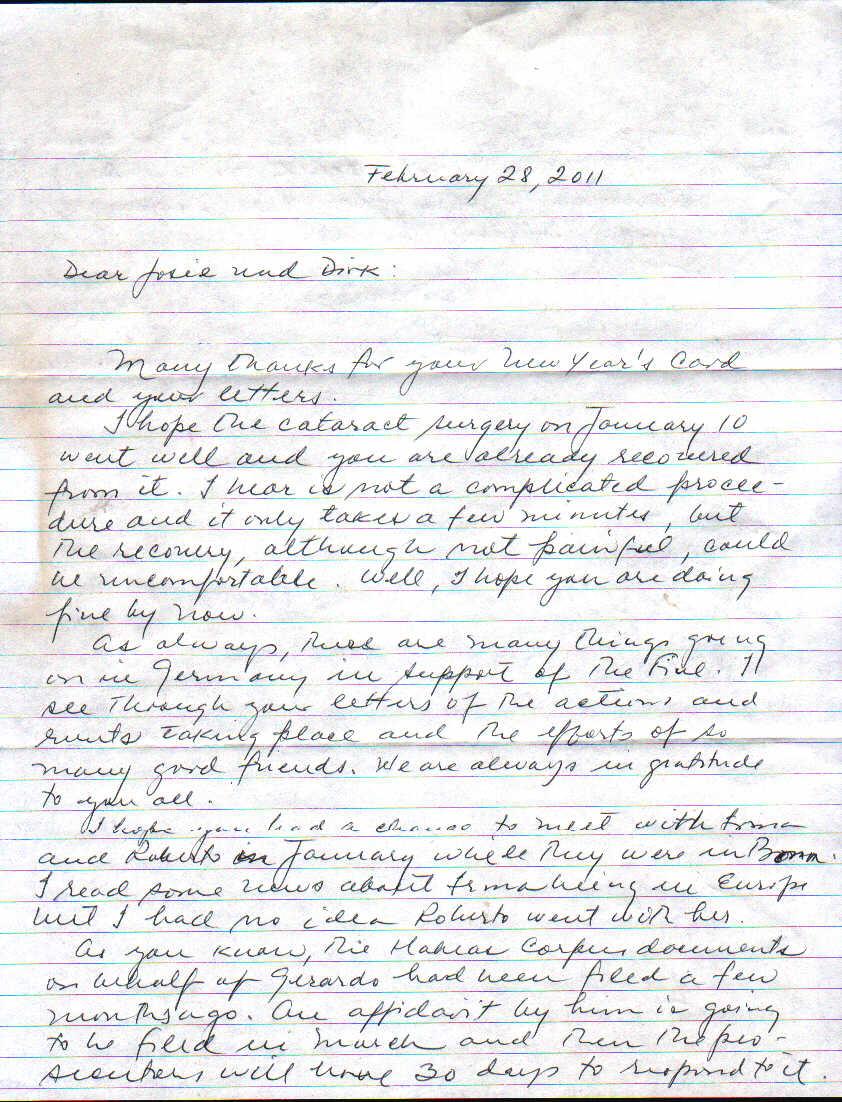 February 28, 2011
Dear Josie und Dirk:
Many thanks for your New Year's card
and your letters.
I hope the cataract surgery on January 10
went well and you are already recovered
from it. I hear is not a complicated procee-
dure and it only takes a few minutes, but
the recovery, although not painful, could
be uncomfortable. Well, I hope you are doing
fine by now.
As always, there are many things going
on in Germany in support of the Five. I
see through your letters of the actions and
events taking place and the efforts of so
many good friends. We are always in gratitude
to you all.
I hope you had a chance to meet with Irma
and Roberto in January while they were in Bonn.
I read some news about Irma being in Europe
but I had no idea Roberto went with her.
As you know, the Habeas Corpus documents
on behalf of Gerardo had been filed a few
months ago. An affidavit by him is going
to be filed in March and then the pro-
secutors will have 30 days to respond to it.